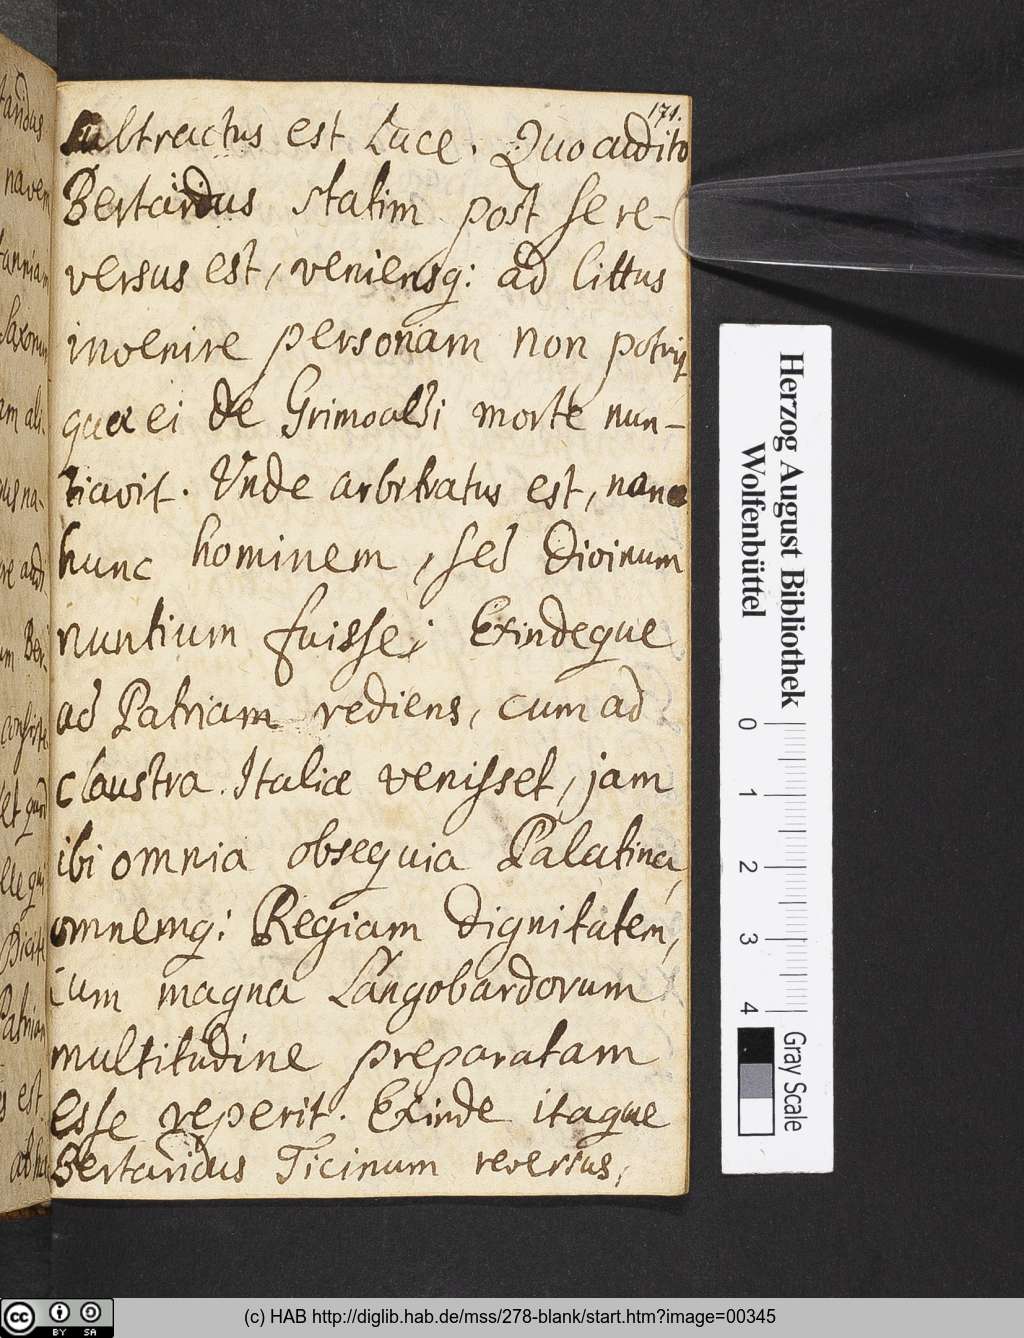 171.
subtractus est Luce. Quo audito
Bertaridus statim post se re-
versus est, veniensq: ad littus
invenire personam non potuit,
quae ei de Grimoaldi morte nun-
tiavit. Unde arbitratus est, non
hunc hominem, sed Divinum
nuntium fuisse; Exindeque
ad Patriam rediens, cum ad
claustra Italiæ venisset, jam
ibi omnia obsequia Palatina,
omnemq: Regiam dignitatem,
cum magna Langobardorum
multitudine preparatam
esse reperit. Exinde itaque
Bertaridus Ticinum reversus,
Herzog August Bibliothek
Wolfenbüttel
0 1 2 3 4
Gray Scale
(c) HAB http://diglib.hab.de/mss/278-blank/start.htm?image=00345
cc BY SA